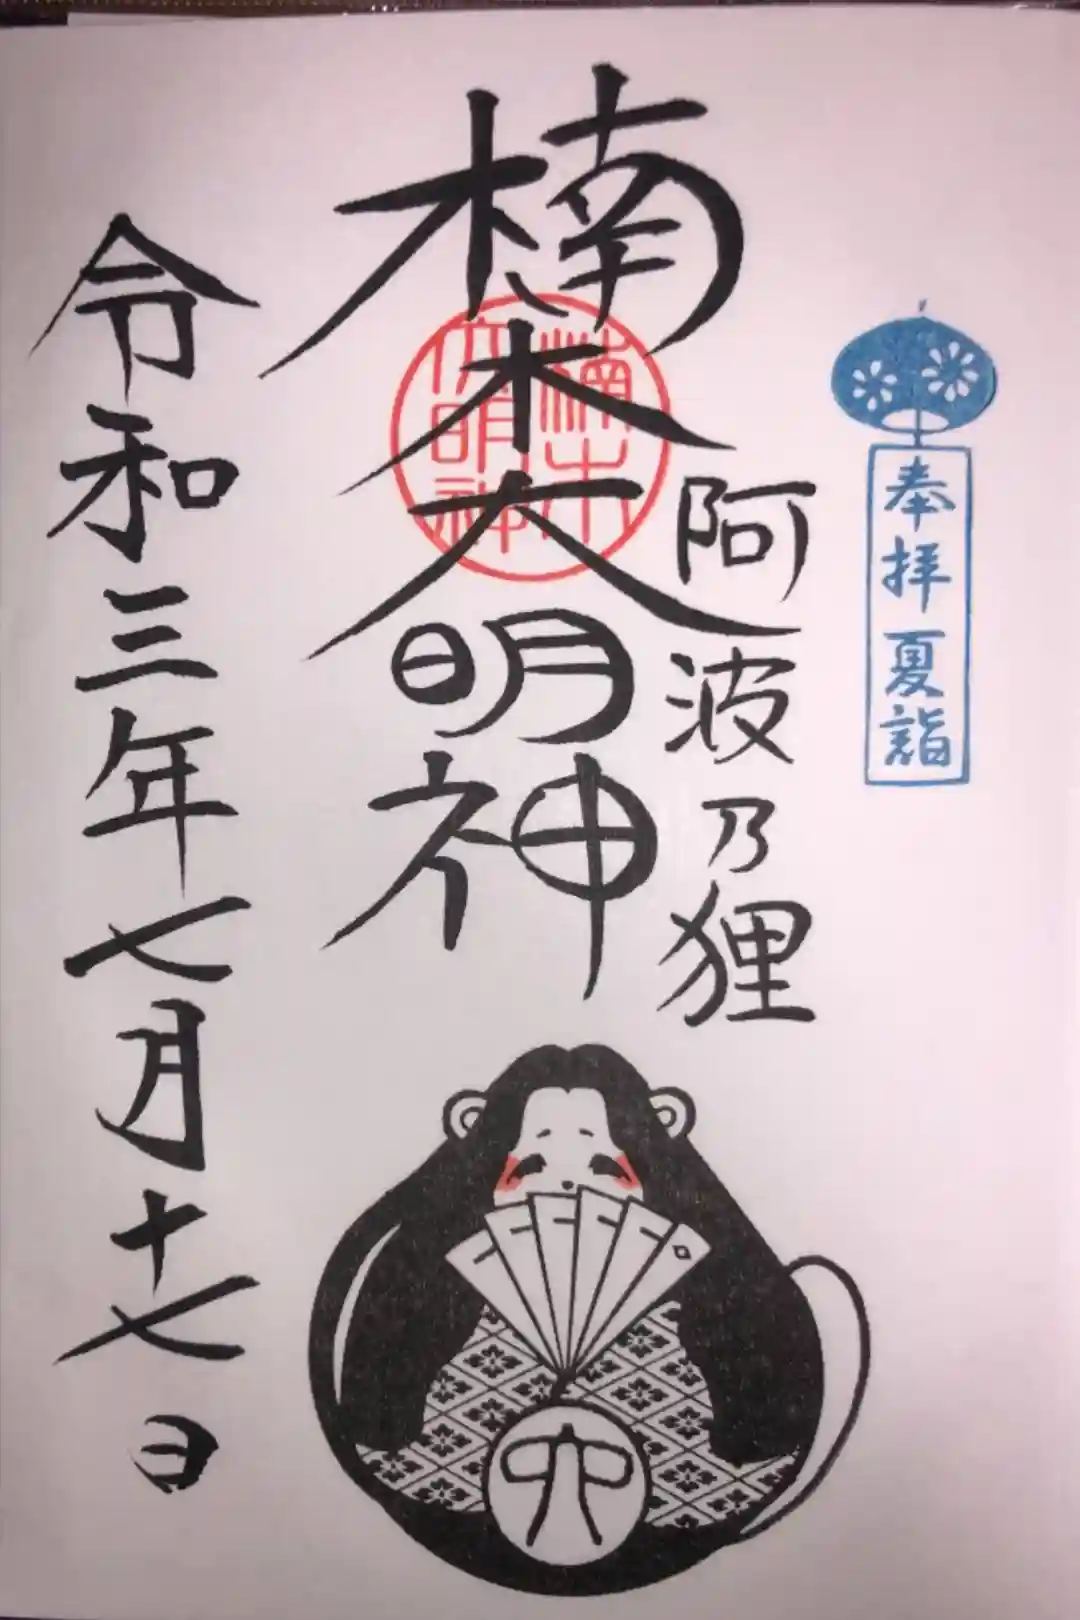 奉拝夏詣
阿波乃狸
楠木大明神
楠木
大明神
令和三年七月十七日
六